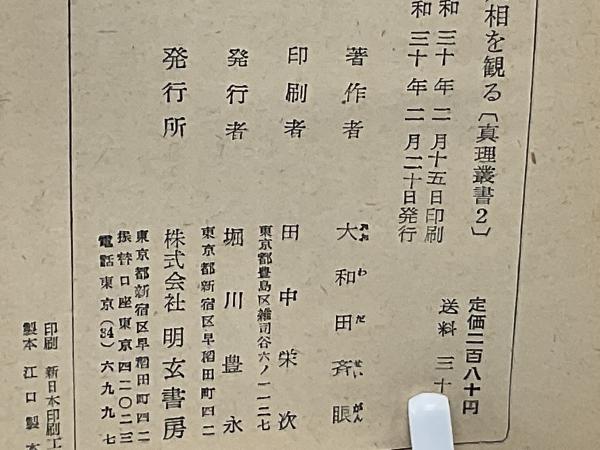 相を観る〔真理叢書2〕
和三十年二月十五日印刷
和三十年二月二十日発行
定価二百八十円
送料三十
著作者 大和田斉眼
おおわだせいがん
印刷者 田中栄次
東京都豊島区雑司谷六ノ一一二七
発行者 堀川豊永
東京都新宿区早稲田町四二
発行所 株式会社明玄書房
東京都新宿区早稲田町四二
振替口座東京四二〇二三
電話東京(34)六九九七
印刷 新日本印刷工
製本 江口製本